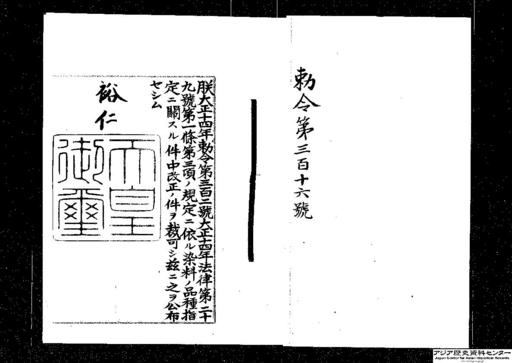 勅令第三百十六號
朕大正十四年勅令第三百二號大正十四年法律第二十
九號第一條第三項ノ規定ニ依ル染料ノ品種指
定ニ關スル件中改正ノ件ヲ裁可シ茲ニ之ヲ公布
セシム
裕仁
天皇
御璽
アジア歴史資料センター
Japan Center for Asian Historical Records